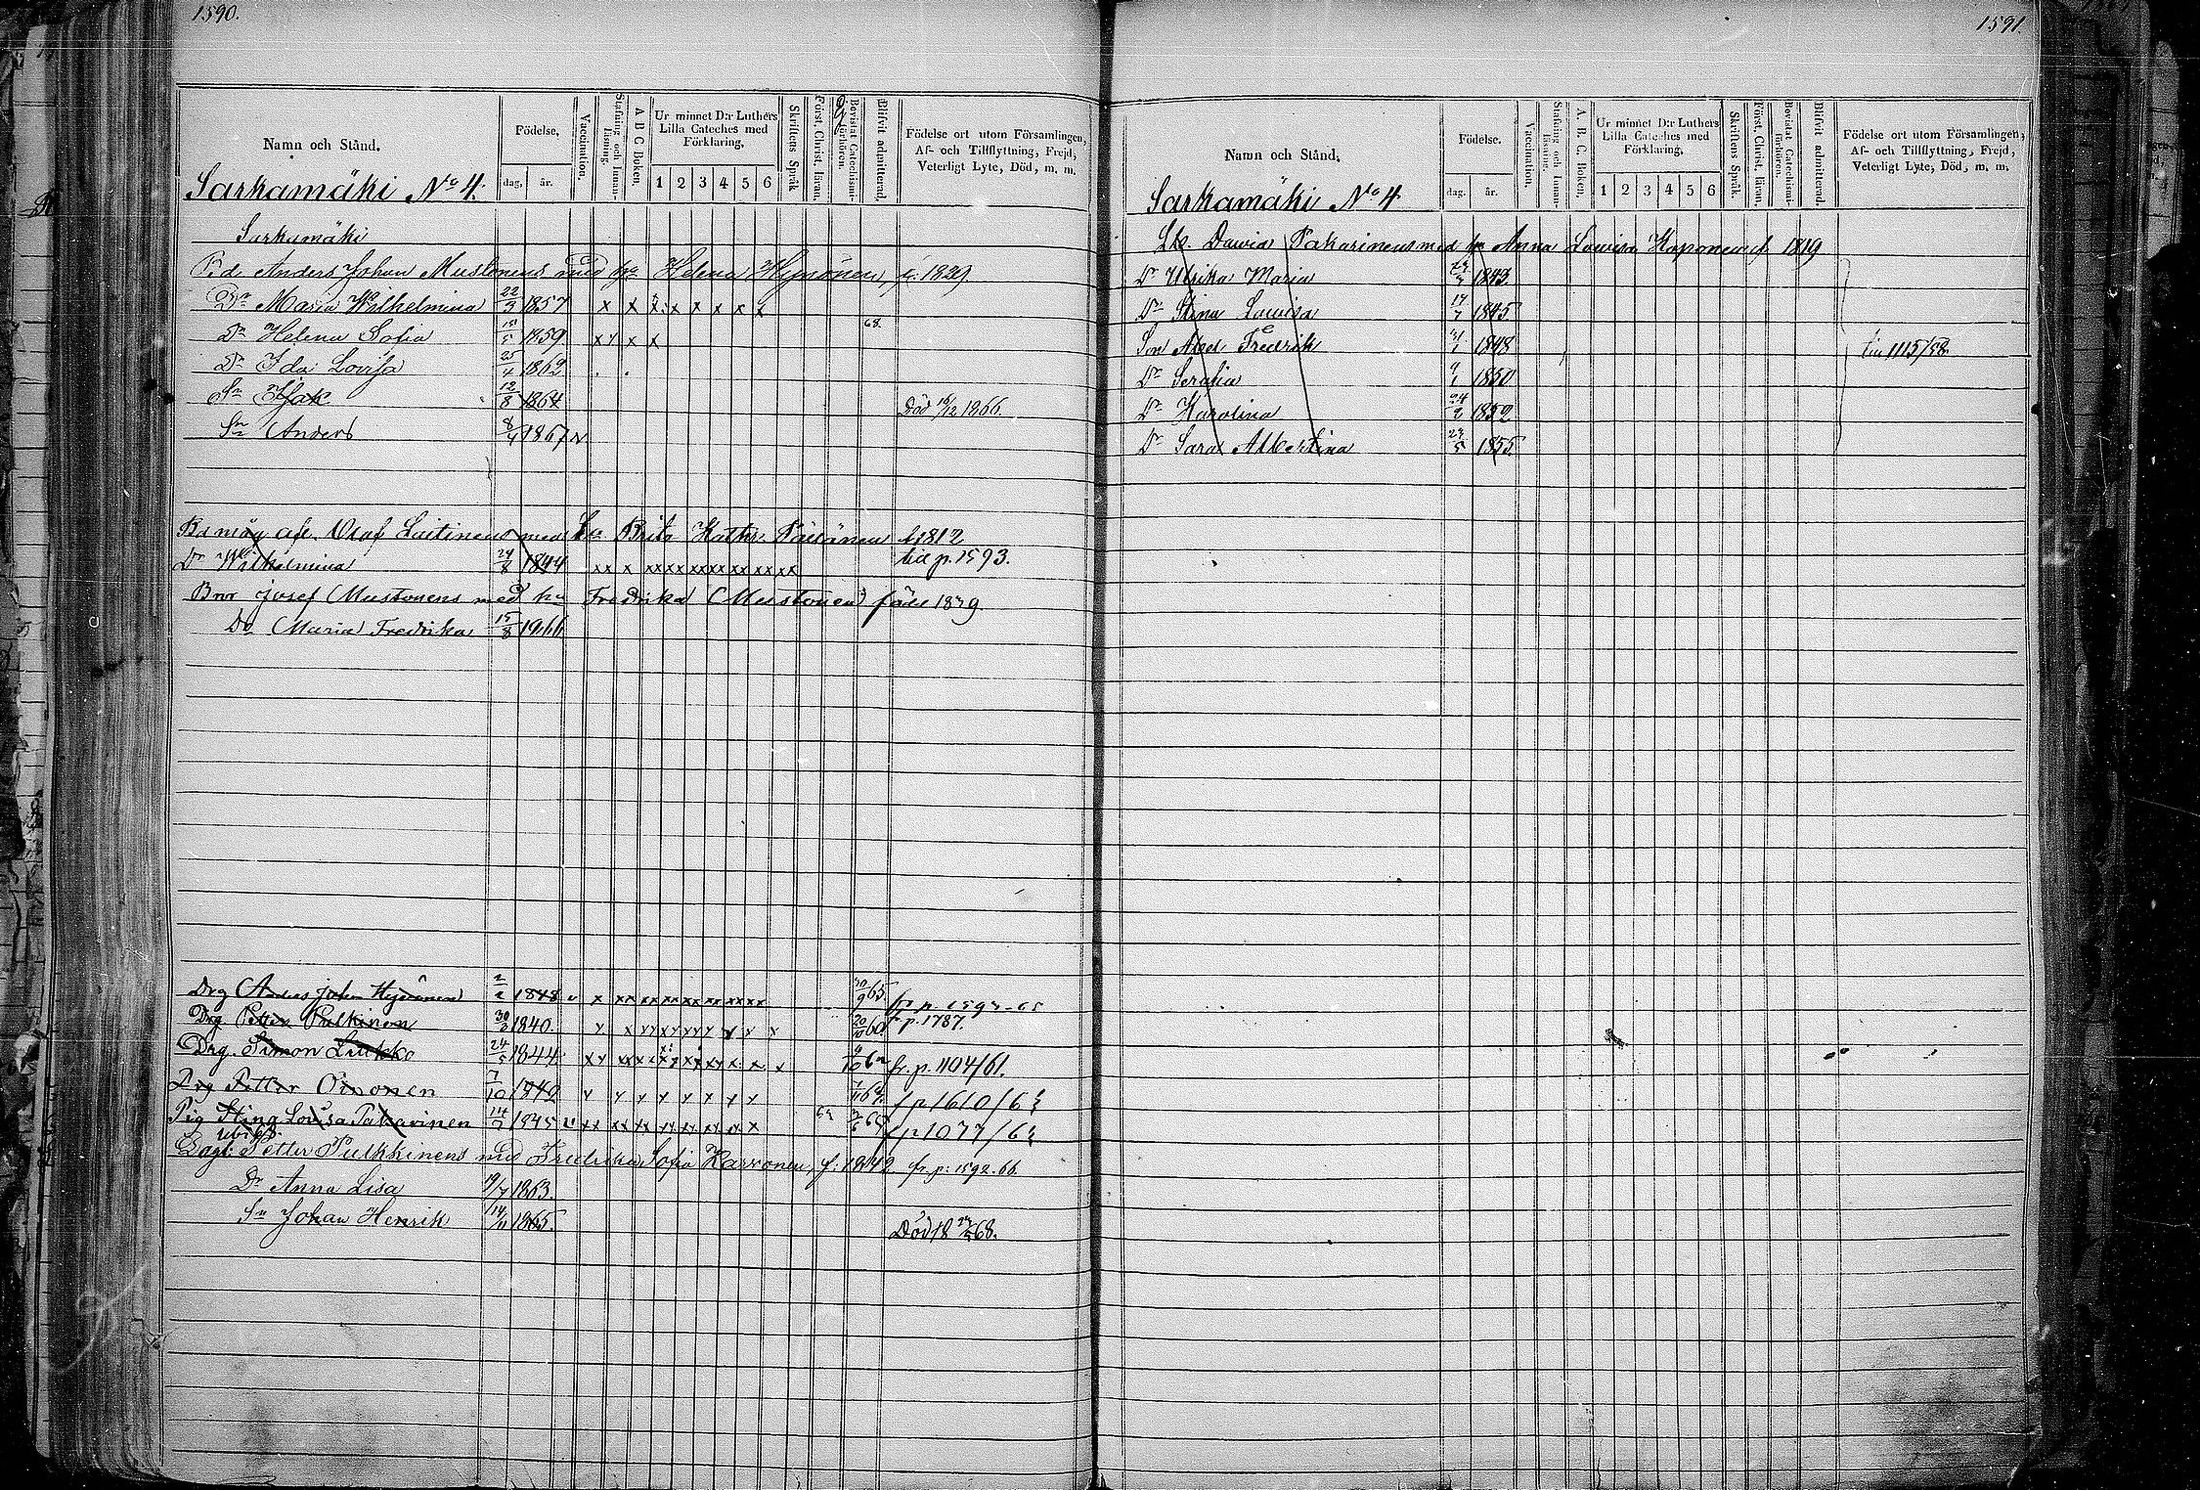 1590.
Namn och Stånd.
Födelse,
dag, år.
Vaccination.
Stafning och Innan-läsning.
A B C Boken.
Ur minnet D:r Luthers Lilla Cateches med Förklaring.
1 2 3 4 5 6
Skriftens Språk
Först. Christ. läran.
Bevistat Catechismi-förhören.
Blifvit admitterad.
Födelse ort utom Församlingen, Af- och Tillflyttning, Frejd, Veterligt Lyte, Död, m. m.
Sarkamäki No 4.
Sarkamäki
Anders Johan Mustonens med hu Helena Hyvönen, f. 1829.
Dr Maria Wilhelmina 22/3 1857 x x x x x x x x
Dr Helena Sofia 1859 x x x x 68.
Dr Ida Lovisa 25/4 1862
Sn Isak 12/8 1864 Död 16/12 1866.
Sn Anders 8/4 1867 v
afl. Olof Laitinens med Brita Kathr. Päiänen f. 1812
Dr Wilhelmina 24/8 1844 xx x xx xx xx xx xx xx xx till p. 1593.
Bror Josef Mustonens med hu Fredrika Mustonen född 1839
Dr Maria Fredrika 15/8 1866
Drg Anders Johan Hyvönen 1848 65.
Drg Petter Pulkinen 30/3 1840. 20/10 60 f p. 1787.
Drg. Simon Liukko 24/5 1844 fr. p. 1104/61.
Drg Petter Oinonen 7/10 1842 f p 1610/6
Pig Stina Lovisa Pakarinen 1845 f p 1077/6
Petter Pulkkinens med Fredrika Sofia Karvonen, f: 1842 fr. p: 1592. 66.
Dr Anna Lisa 19/7 1863.
Sn Johan Henrik 14/11 1865. Död 18 68.
1591.
Namn och Stånd.
Födelse.
dag. år.
Vaccination.
Stafning och Innan-läsning.
A. B. C. Boken.
Ur minnet D:r Luthers Lilla Cateches med Förklaring.
1 2 3 4 5 6
Skriftens Språk.
Först. Christ. läran.
Bevistat Catechismi-förhören.
Blifvit admitterad.
Födelse ort utom Församlingen, Af- och Tillflyttning, Frejd, Veterligt Lyte, Död, m. m.
Sarkamäki No 4.
Dawid Pakarinens med hu Anna Lowisa Kaponen f 1819
Dr Ulrika Maria 1843.
Dr Stina Lowisa 17/7 1845
Son Abel Fredrik 1848 1115/58
Dr Serafia 1850
Dr Karolina 1852
Dr Sara Albertina 1855